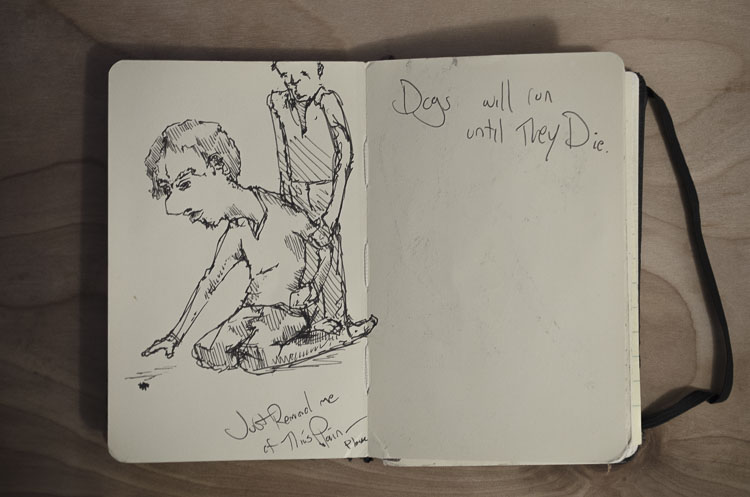 Just Remind me
of This Pain
Please
Dogs will run
until They Die.